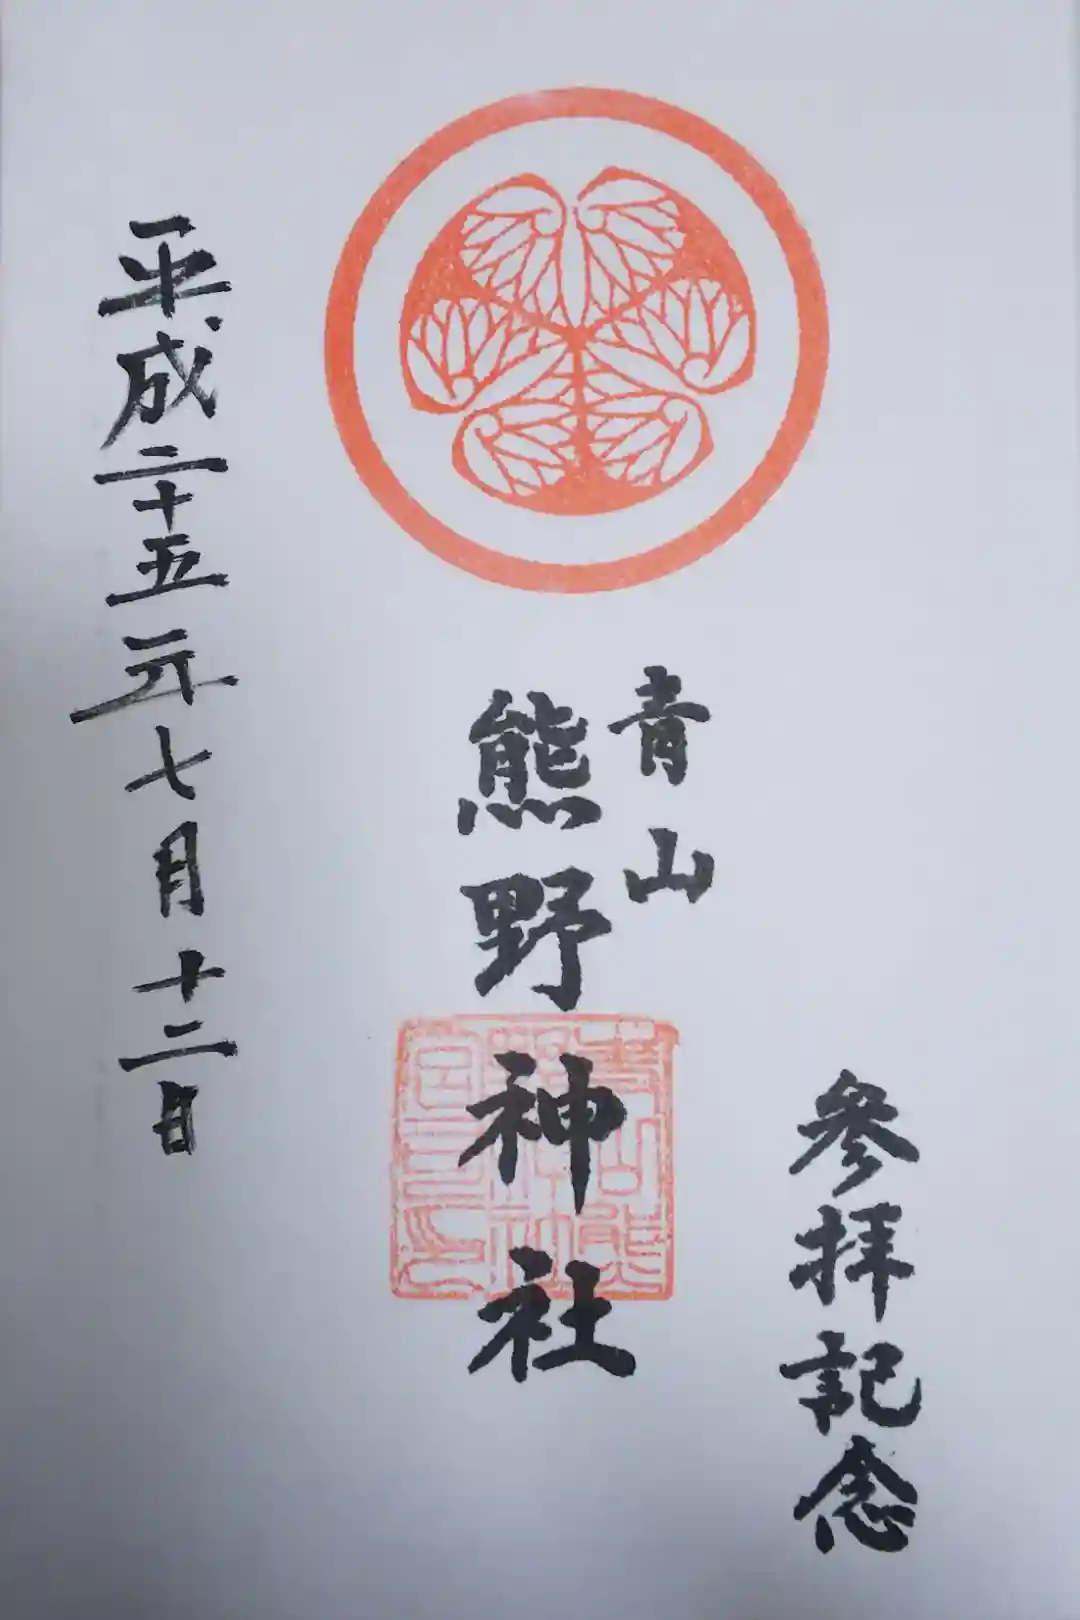 參拜記念
青山
熊野神社
平成二十五年七月十二日